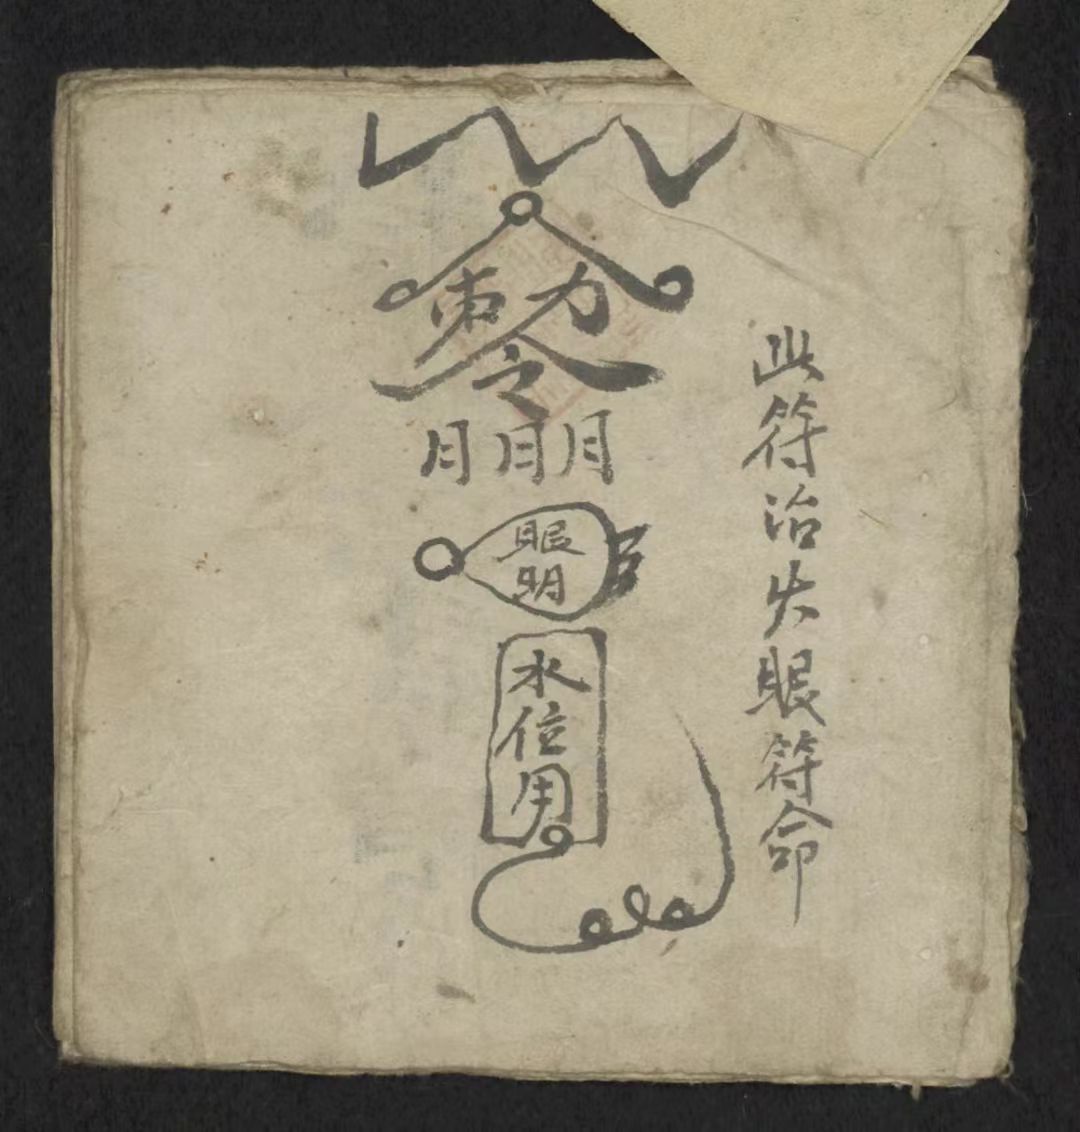 此符治失眼符命
勅令
月月月
眼明
水位用